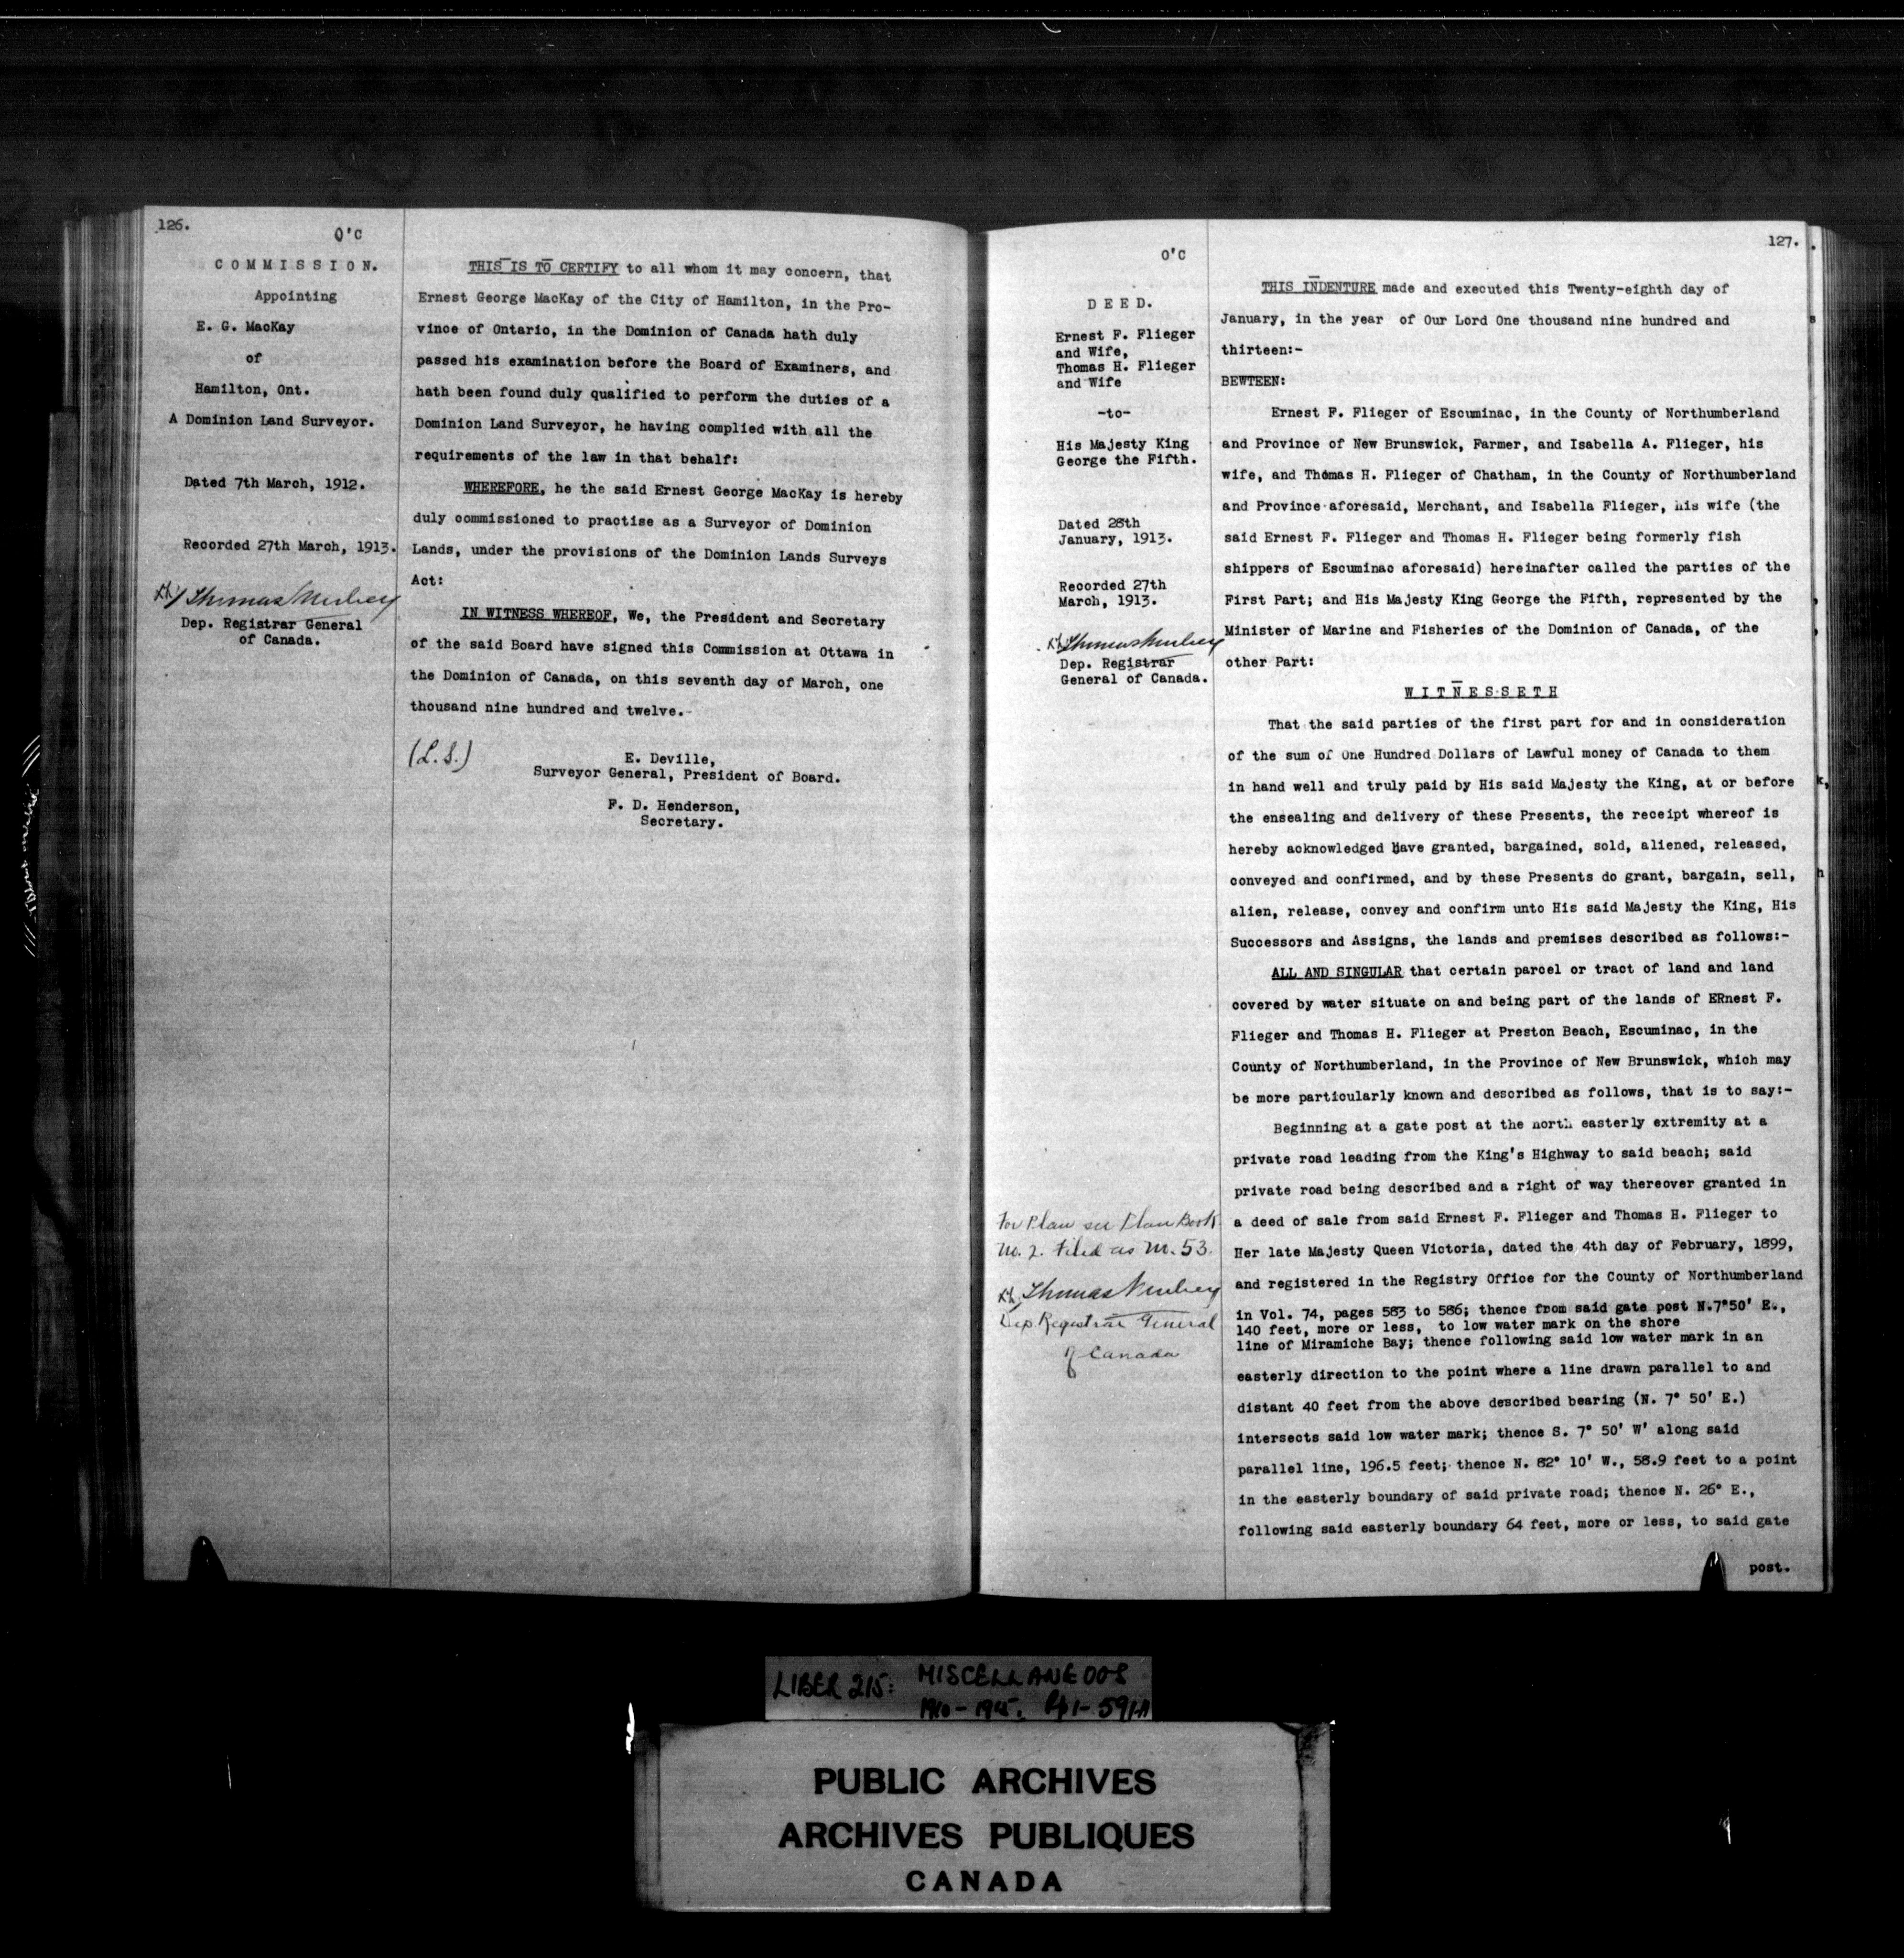 126.
O'C
COMMISSION.
Appointing
E. G. MacKay
of
Hamilton, Ont.
A Dominion Land Surveyor.
Dated 7th March, 1912.
Recorded 27th March, 1913.
Thomas Mulvey
Dep. Registrar General
of Canada.
THIS IS TO CERTIFY to all whom it may concern, that
Ernest George MacKay of the City of Hamilton, in the Pro-
vince of Ontario, in the Dominion of Canada hath duly
passed his examination before the Board of Examiners, and
hath been found duly qualified to perform the duties of a
Dominion Land Surveyor, he having complied with all the
requirements of the law in that behalf:
WHEREFORE, he the said Ernest George MacKay is hereby
duly commissioned to practise as a Surveyor of Dominion
Lands, under the provisions of the Dominion Lands Surveys
Act:
IN WITNESS WHEREOF, We, the President and Secretary
of the said Board have signed this Commission at Ottawa in
the Dominion of Canada, on this seventh day of March, one
thousand nine hundred and twelve.-
(L.S.)
E. Deville,
Surveyor General, President of Board.
F. D. Henderson,
Secretary.
127.
O'C
DEED.
Ernest F. Flieger
and Wife,
Thomas H. Flieger
and Wife
-to-
His Majesty King
George the Fifth.
Dated 28th
January, 1913.
Recorded 27th
March, 1913.
Thomas Mulvey
Dep. Registrar
General of Canada.
For Plan see Plan Book
No. 2. Filed as No. 53.
Thomas Mulvey
Dep Registrar General
of Canada
THIS INDENTURE made and executed this Twenty-eighth day of
January, in the year of Our Lord One thousand nine hundred and
thirteen:-
BEWTEEN:
Ernest F. Flieger of Escuminac, in the County of Northumberland
and Province of New Brunswick, Farmer, and Isabella A. Flieger, his
wife, and Thomas H. Flieger of Chatham, in the County of Northumberland
and Province aforesaid, Merchant, and Isabella Flieger, his wife (the
said Ernest F. Flieger and Thomas H. Flieger being formerly fish
shippers of Escuminac aforesaid) hereinafter called the parties of the
First Part; and His Majesty King George the Fifth, represented by the
Minister of Marine and Fisheries of the Dominion of Canada, of the
other Part:
WITNESSETH
That the said parties of the first part for and in consideration
of the sum of One Hundred Dollars of Lawful money of Canada to them
in hand well and truly paid by His said Majesty the King, at or before
the ensealing and delivery of these Presents, the receipt whereof is
hereby acknowledged Have granted, bargained, sold, aliened, released,
conveyed and confirmed, and by these Presents do grant, bargain, sell,
alien, release, convey and confirm unto His said Majesty the King, His
Successors and Assigns, the lands and premises described as follows:-
ALL AND SINGULAR that certain parcel or tract of land and land
covered by water situate on and being part of the lands of ERnest F.
Flieger and Thomas H. Flieger at Preston Beach, Escuminac, in the
County of Northumberland, in the Province of New Brunswick, which may
be more particularly known and described as follows, that is to say:-
Beginning at a gate post at the north easterly extremity at a
private road leading from the King's Highway to said beach; said
private road being described and a right of way thereover granted in
a deed of sale from said Ernest F. Flieger and Thomas H. Flieger to
Her late Majesty Queen Victoria, dated the 4th day of February, 1899,
and registered in the Registry Office for the County of Northumberland
in Vol. 74, pages 583 to 586; thence from said gate post N.7°50' E.,
140 feet, more or less, to low water mark on the shore
line of Miramiche Bay; thence following said low water mark in an
easterly direction to the point where a line drawn parallel to and
distant 40 feet from the above described bearing (N. 7° 50' E.)
intersects said low water mark; thence S. 7° 50' W' along said
parallel line, 196.5 feet; thence N. 82° 10' W., 58.9 feet to a point
in the easterly boundary of said private road; thence N. 26° E.,
following said easterly boundary 64 feet, more or less, to said gate
post.
LIBER 215: MISCELLANEOUS
1910-1915. Pp 1-591A
PUBLIC ARCHIVES
ARCHIVES PUBLIQUES
CANADA